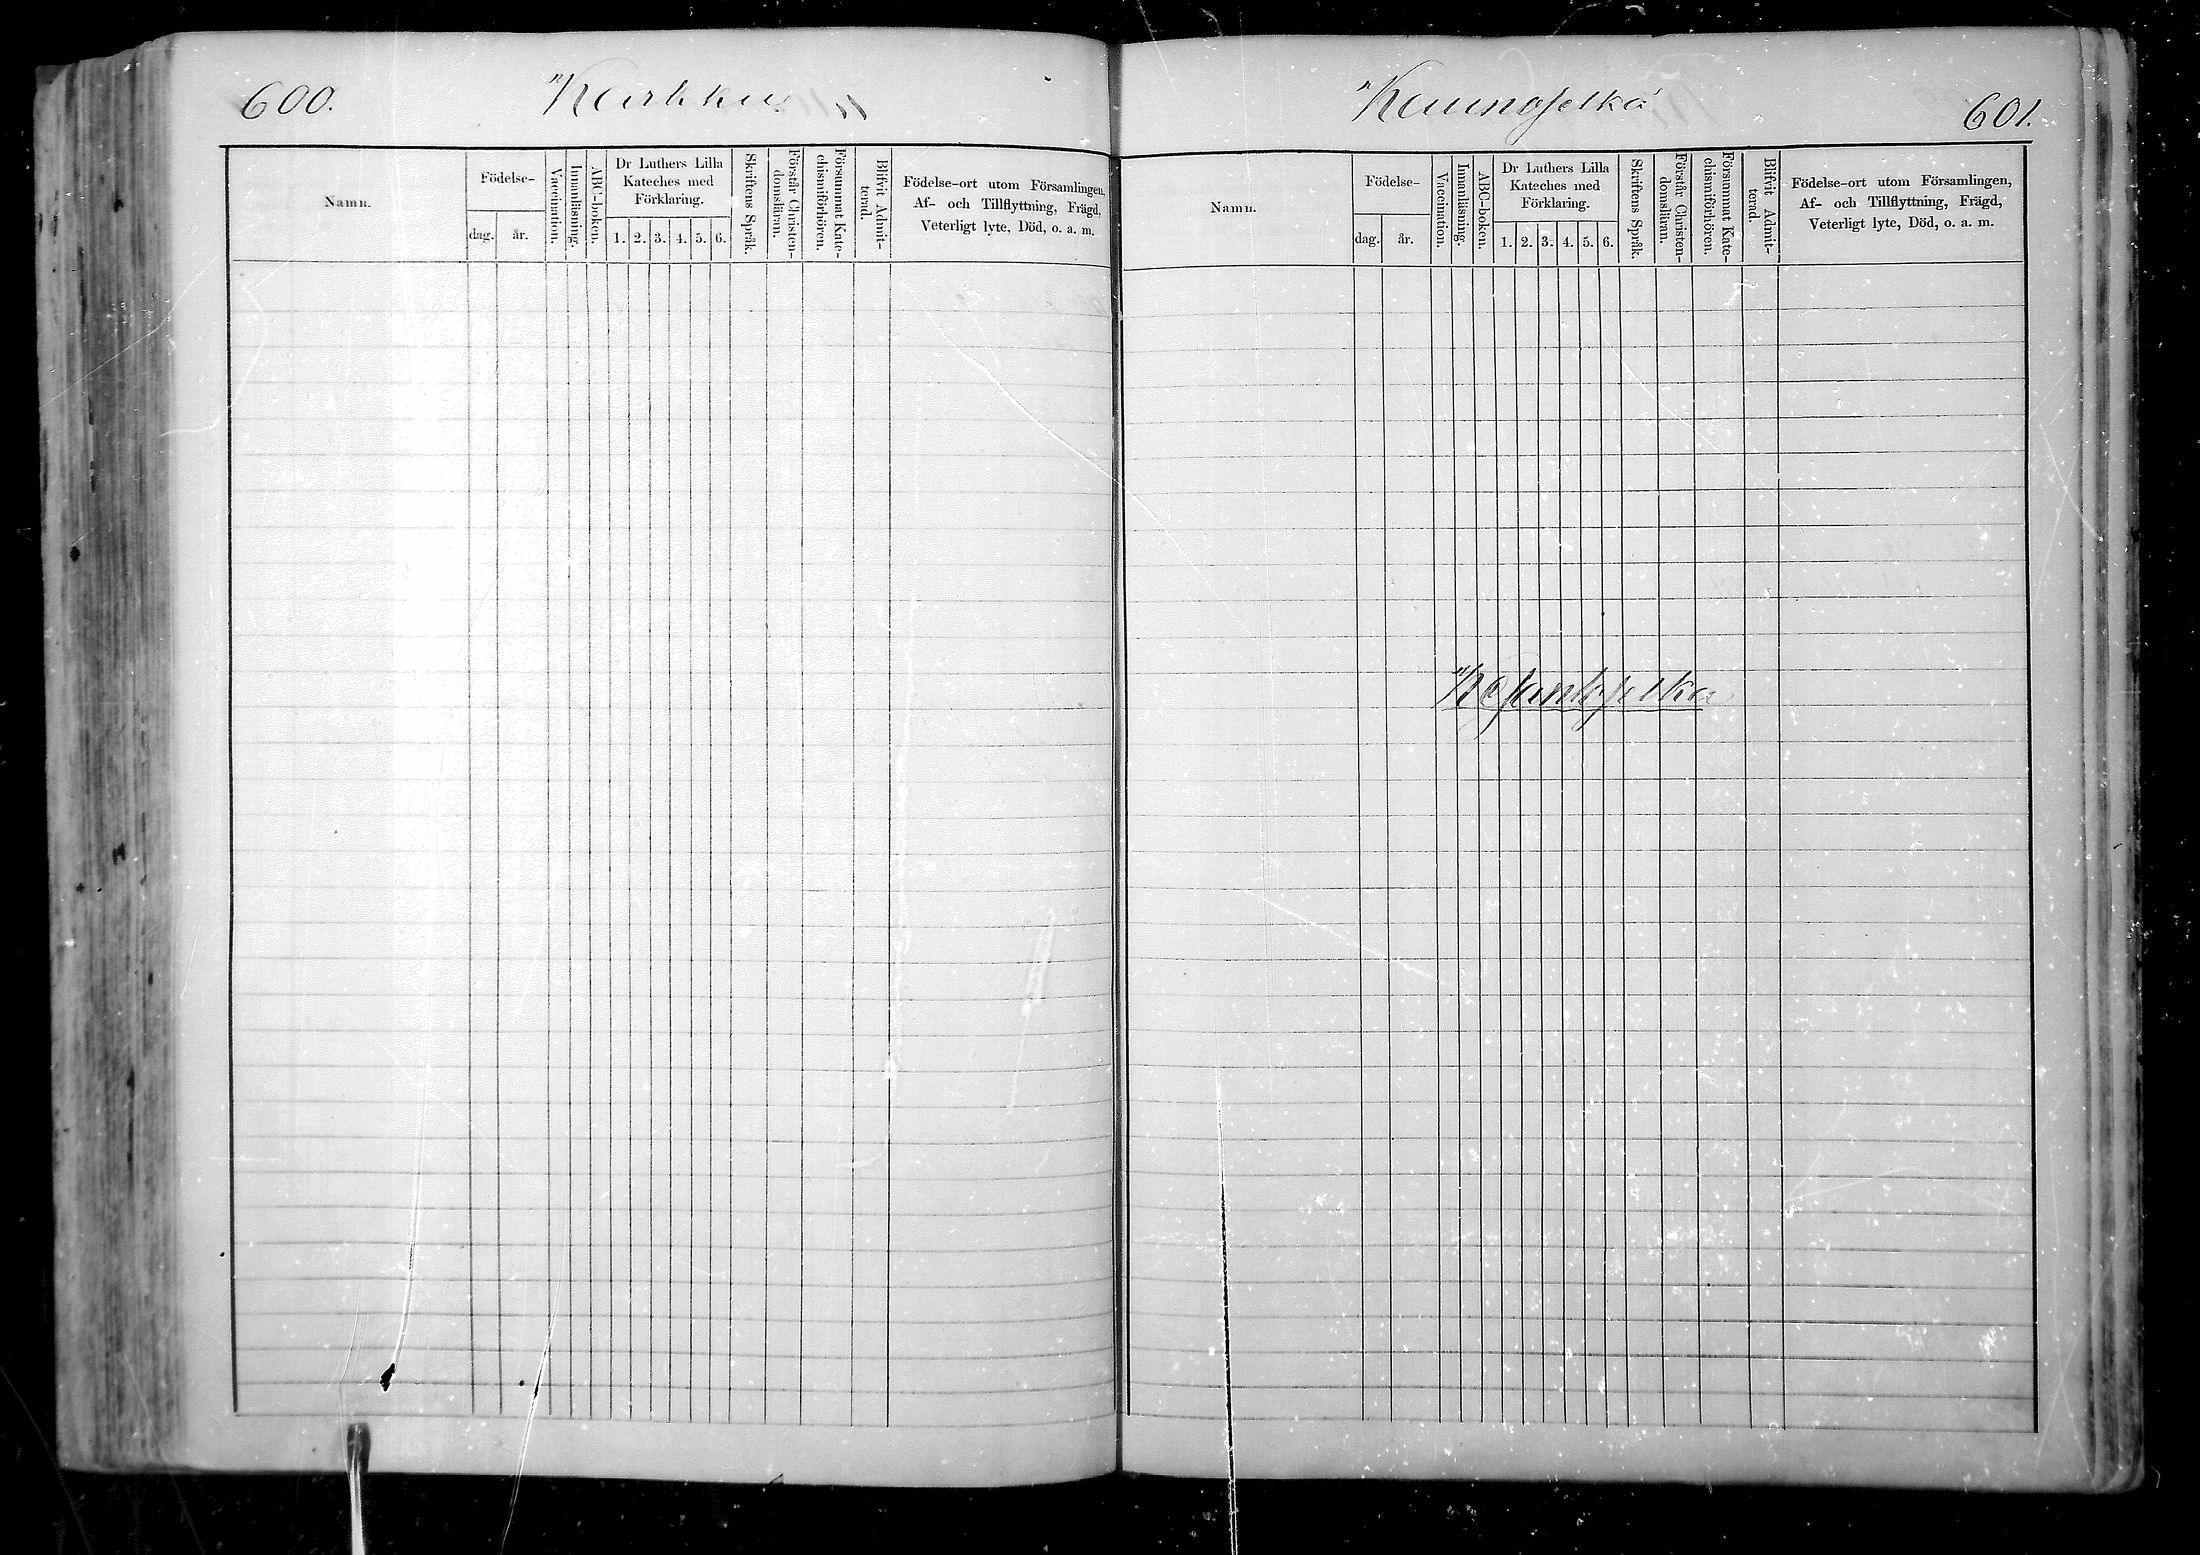 600.
Karkku
Namn.
Födelse-
dag.
år.
Vaccination.
Innanläsning.
ABC-boken.
Dr Luthers Lilla
Kateches med
Förklaring.
1. 2. 3. 4. 5. 6.
Skriftens Språk.
Förstår Christen-
domsläran.
Försummat Kate-
chismiförhören.
Blifvit Admit-
terad.
Födelse-ort utom Församlingen,
Af- och Tillflyttning, Frägd,
Veterligt lyte, Död, o. a. m.
601.
Namn.
Födelse-
dag.
år.
Vaccination.
Innanläsning.
ABC-boken.
Dr Luthers Lilla
Kateches med
Förklaring.
1. 2. 3. 4. 5. 6.
Skriftens Språk.
Förstår Christen-
domsläran.
Försummat Kate-
chismiförhören.
Blifvit Admit-
terad.
Födelse-ort utom Församlingen,
Af- och Tillflyttning, Frägd,
Veterligt lyte, Död, o. a. m.